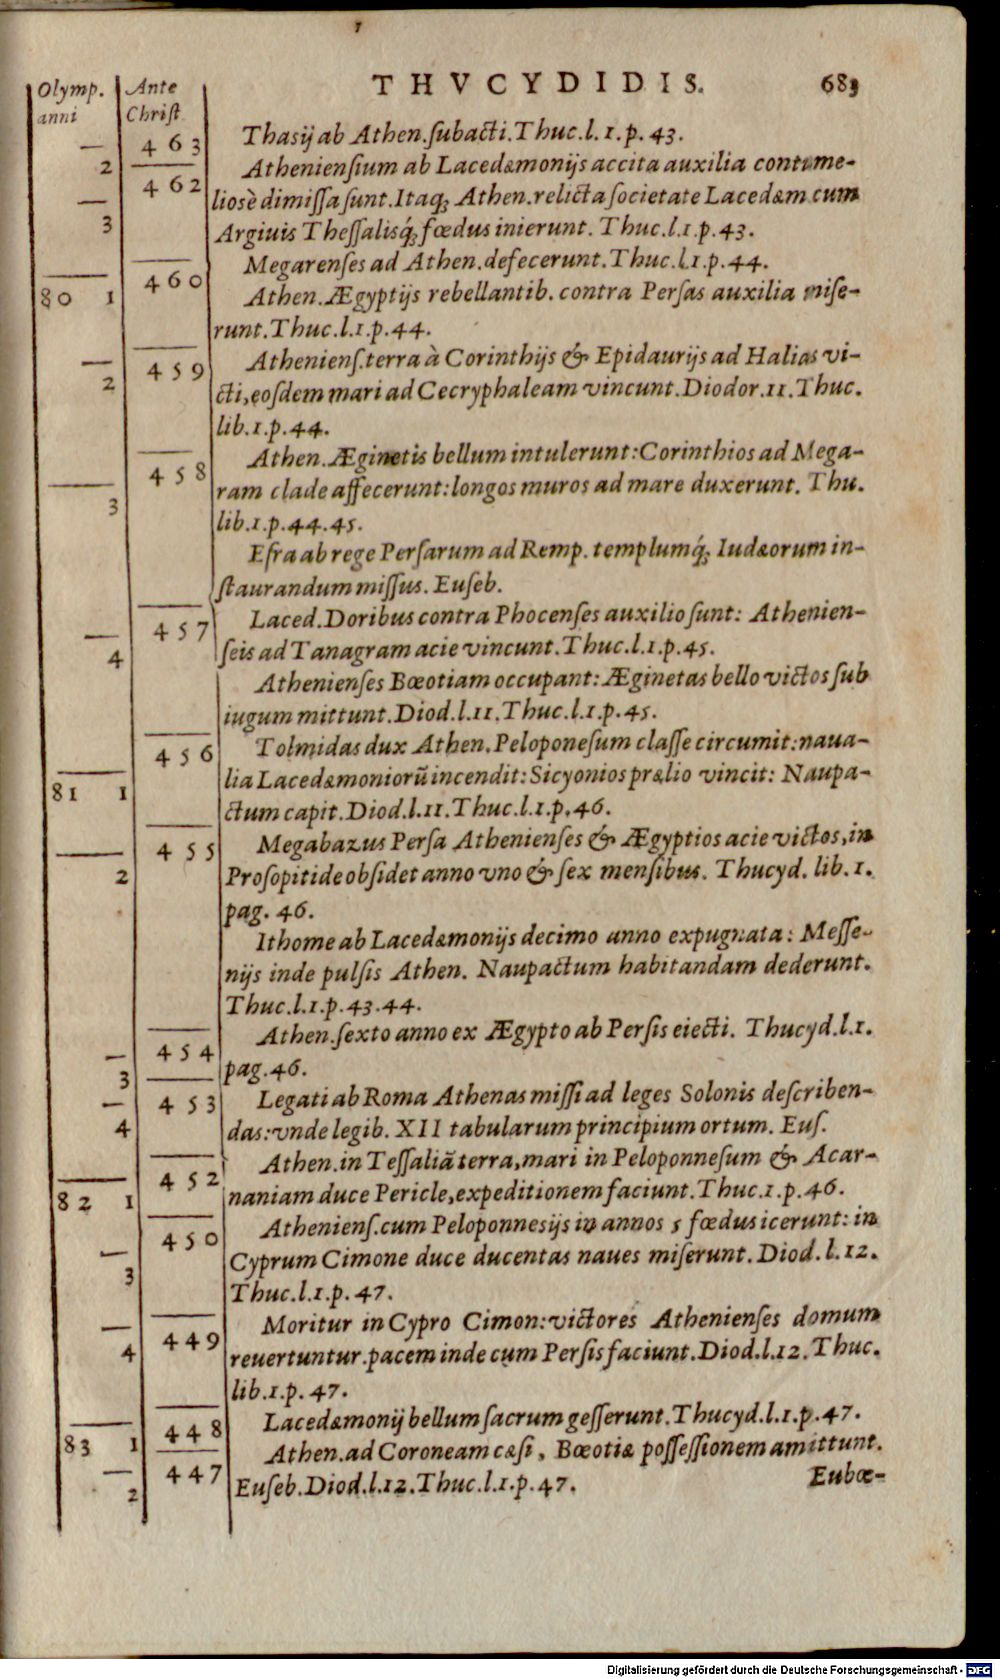 Olymp. Ante THVCYDIDIS. 683
anni Christ
463 Thasij ab Athen.subacti.Thuc.l.1.p.43.
2 Atheniensium ab Lacedæmonijs accita auxilia contume-
462 liosè dimissa sunt.Itaq; Athen.relicta societate Lacedæm cum
3 Argiuis Thessalisq́; fœdus inierunt. Thuc.l.1.p.43.
Megarenses ad Athen.defecerunt.Thuc.l.1.p.44.
80 1 460 Athen.Ægyptijs rebellantib. contra Persas auxilia mise-
runt.Thuc.l.1.p.44.
459 Atheniens.terra à Corinthijs & Epidaurijs ad Halias vi-
2 cti,eosdem mari ad Cecryphaleam vincunt.Diodor.11.Thuc.
lib.1.p.44.
Athen.Æginetis bellum intulerunt:Corinthios ad Mega-
458 ram clade affecerunt:longos muros ad mare duxerunt. Thu.
3 lib.1.p.44.45.
Esra ab rege Persarum ad Remp. templumq́; Iudæorum in-
staurandum missus. Euseb.
457 Laced.Doribus contra Phocenses auxilio sunt: Athenien-
4 seis ad Tanagram acie vincunt.Thuc.l.1.p.45.
Athenienses Bœotiam occupant:Æginetas bello victos sub
iugum mittunt.Diod.l.11.Thuc.l.1.p.45.
456 Tolmidas dux Athen.Peloponesum classe circumit:naua-
81 1 lia Lacedæmoniorũ incendit:Sicyonios prælio vincit: Naupa-
ctum capit.Diod.l.11.Thuc.l.1.p.46.
455 Megabazus Persa Athenienses & Ægyptios acie victos,in
2 Prosopitide obsidet anno vno & sex mensibus. Thucyd. lib.1.
pag. 46.
Ithome ab Lacedæmonijs decimo anno expugnata: Messe-
nijs inde pulsis Athen. Naupactum habitandam dederunt.
Thuc.l.1.p.43.44.
454 Athen.sexto anno ex Ægypto ab Persis eiecti. Thucyd.l.1.
3 pag.46.
453 Legati ab Roma Athenas missi ad leges Solonis describen-
4 das:vnde legib. XII tabularum principium ortum. Eus.
452 Athen.in Tessaliã terra,mari in Peloponnesum & Acar-
82 1 naniam duce Pericle,expeditionem faciunt.Thuc.1.p.46.
450 Atheniens.cum Peloponnesijs in annos 5 fœdus icerunt: in
3 Cyprum Cimone duce ducentas naues miserunt.Diod.l.12.
Thuc.l.1.p.47.
449 Moritur in Cypro Cimon:victores Athenienses domum
4 reuertuntur.pacem inde cum Persis faciunt.Diod.l.12.Thuc.
lib.1.p.47.
448 Lacedæmonij bellum sacrum gesserunt.Thucyd.l.1.p.47.
83 1 Athen.ad Coroneam cæsi, Bœotiæ possessionem amittunt.
447 Euseb.Diod.l.12.Thuc.l.1.p.47. Eubœ-
2
Digitalisierung gefördert durch die Deutsche Forschungsgemeinschaft - DFG